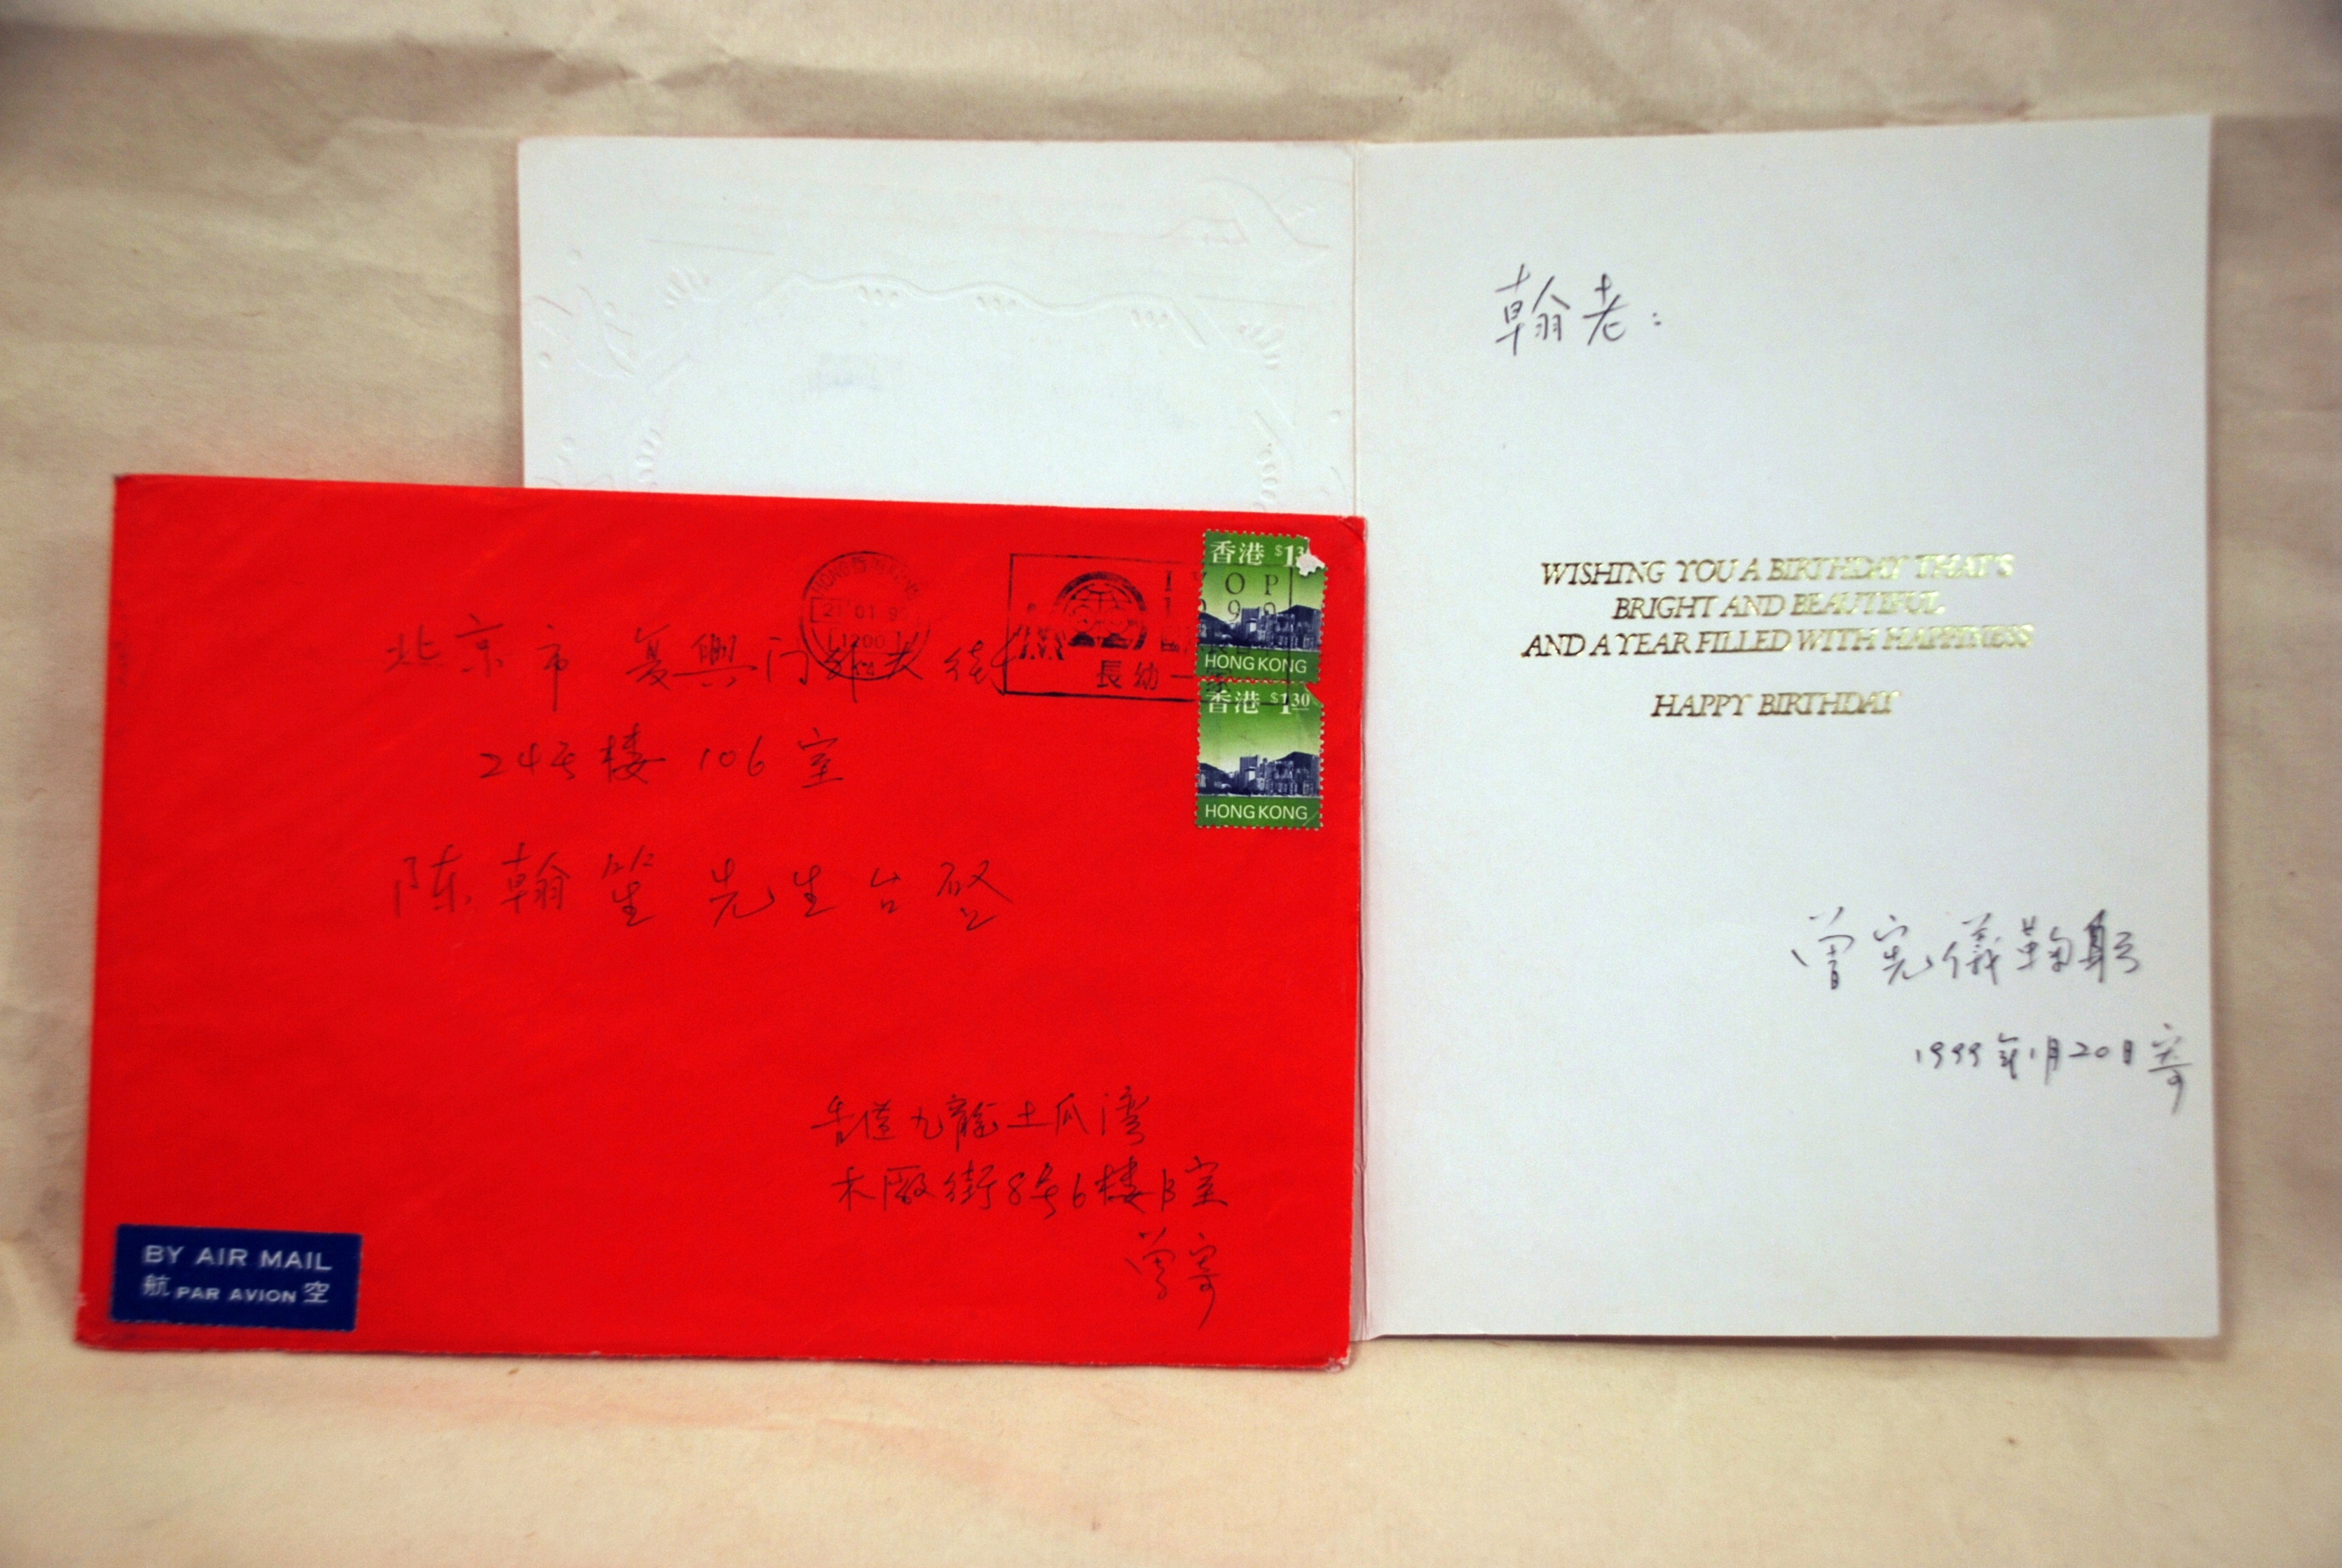 北京市 复興门外大街
24号楼 106室
陈翰笙 先生台啓
香港九龍土瓜湾
木廠街8号6楼B室
曾寄
BY AIR MAIL
航 PAR AVION 空
香港 $1.30
HONG KONG
香港 $1.30
HONG KONG
HONG KONG
21 01 9
1200
I Y O P
1999
長幼一
翰老：
WISHING YOU A BIRTHDAY THAT'S
BRIGHT AND BEAUTIFUL
AND A YEAR FILLED WITH HAPPINESS
HAPPY BIRTHDAY
曾宪儀鞠躬
1999年1月20日寄